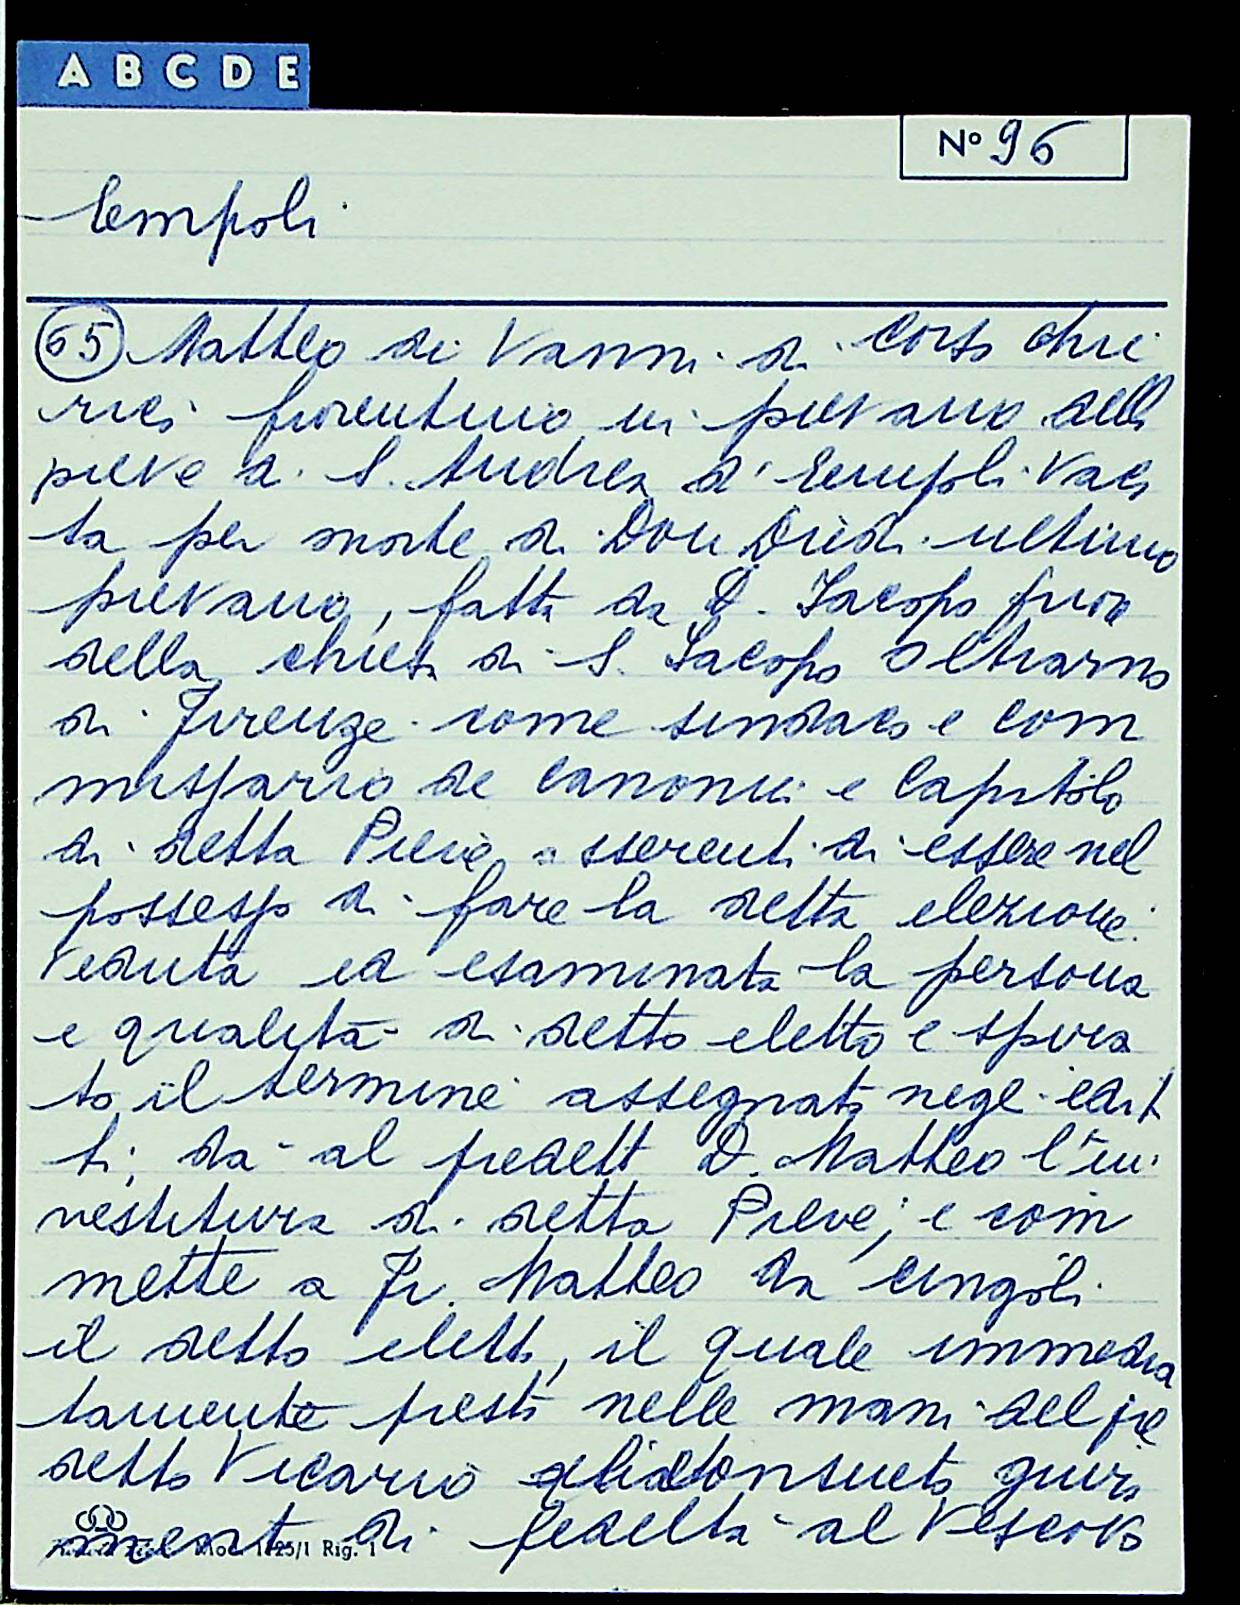 A B C D E
Nº 96
Empoli
65 Matteo di Vanni di Corso chie
rico fiorentino in pievano della
pieve di S. Andrea d'Empoli vaca
ta per morte di Don ultimo
pievano, fatta da D. Jacopo prior
della chiesa di S. Jacopo Oltrarno
di Firenze come sindaco e com
missario de canonici e Capitolo
di detta Pieve asserenti di essere nel
possesso di fare la detta elezione
veduta ed esaminata la persona
e qualità di detto eletto e spira
to il termine assegnato negl edit
ti, dà al predett D. Matteo l'in
vestitura di detta Pieve; e com
mette a Fr. Matteo da Cingoli
il detto eletto, il quale immedia
tamente prestò nelle mani del pre
detto Vicario consueto giura
mento di fedeltà al Vescovo
Mod. 1125/1 Rig. 1